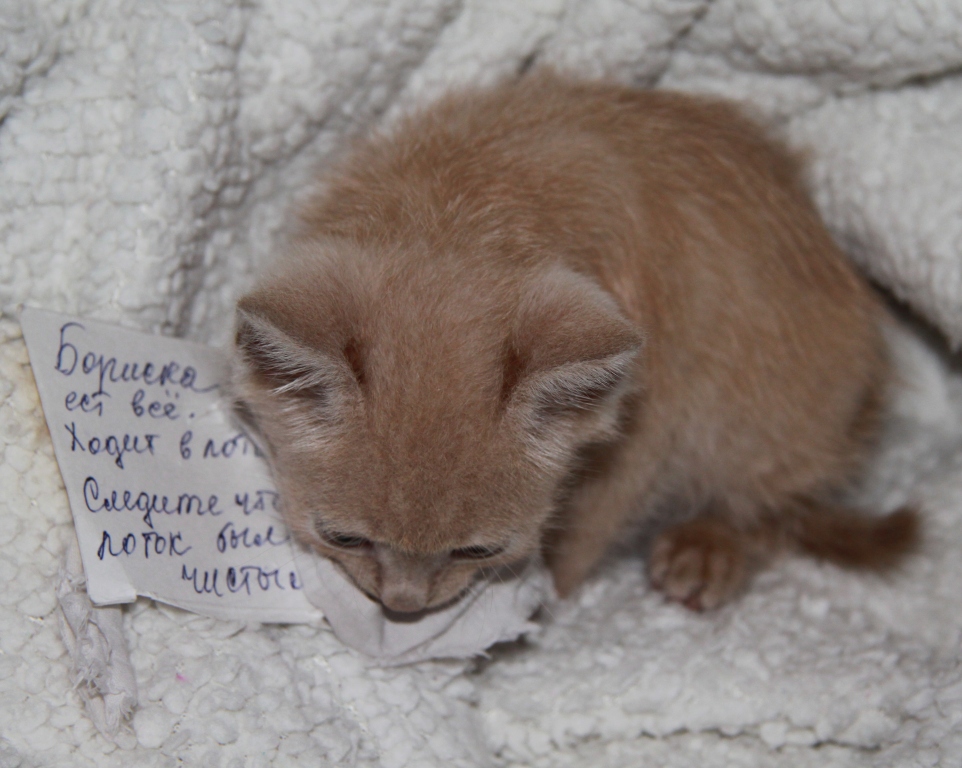 Бориска
ест всё.
Ходит в лот
Следите что
лоток был
чистый